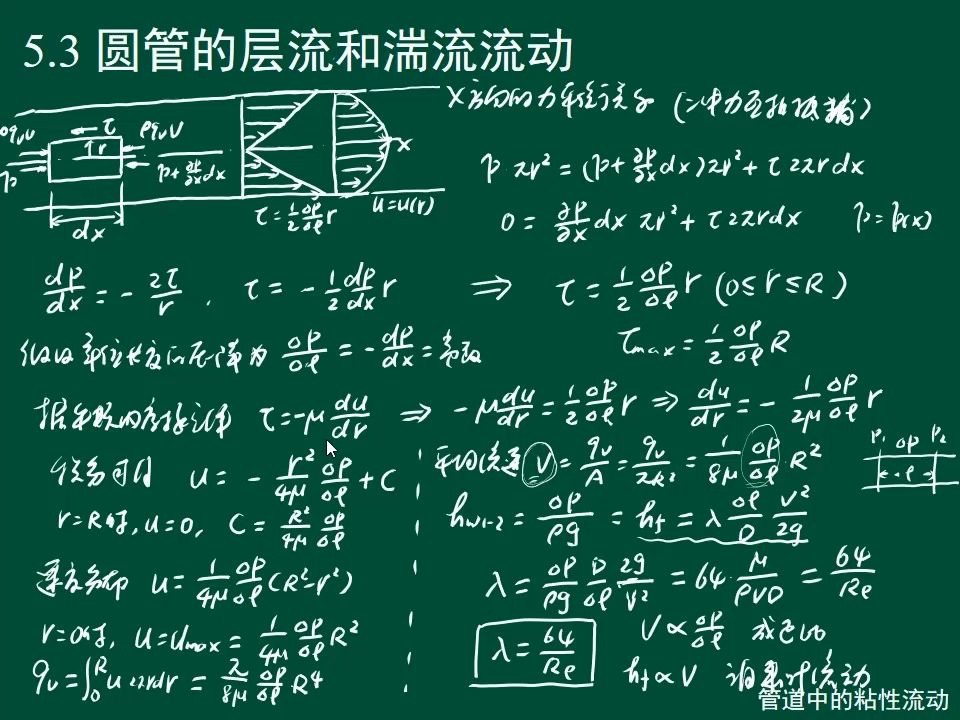 5.3 圆管的层流和湍流流动
x方向的力平衡关系（冲力互相抵消）
ρq_v V τ ρq_v V
r
p p+∂p/∂x dx x
dx τ=1/2 Δp/Δℓ r u=u(r)
p πr²=(p+∂p/∂x dx)πr²+τ2πrdx
0=∂p/∂x dx πr²+τ2πrdx p=p(x)
dp/dx=-2τ/r, τ=-1/2 dp/dx r ⇒ τ=1/2 Δp/Δℓ r (0≤r≤R)
假设单位长度的压降为 Δp/Δℓ=-dp/dx=常数 τmax=1/2 Δp/Δℓ R
据牛顿内摩擦定律 τ=-μ du/dr ⇒ -μ du/dr=1/2 Δp/Δℓ r ⇒ du/dr=-1/2μ Δp/Δℓ r
积分可得 u=-r²/4μ Δp/Δℓ+C
r=R时, u=0, C=R²/4μ Δp/Δℓ
速度分布 u=1/4μ Δp/Δℓ (R²-r²)
r=0时, u=umax=1/4μ Δp/Δℓ R²
q_v=∫₀ᴿ u2πrdr=π/8μ Δp/Δℓ R⁴
平均流速 V=q_v/A=q_v/πR²=1/8μ Δp/Δℓ R²
P₁ ΔP P₂
ℓ
h_w1-2=Δp/ρg=h_f=λ Δℓ/D V²/2g
λ=Δp/ρg D/Δℓ 2g/V²=64 μ/ρVD=64/Re
λ=64/Re V∝Δp/Δℓ 成正比
h_f∝V 泊来叶流动
管道中的粘性流动